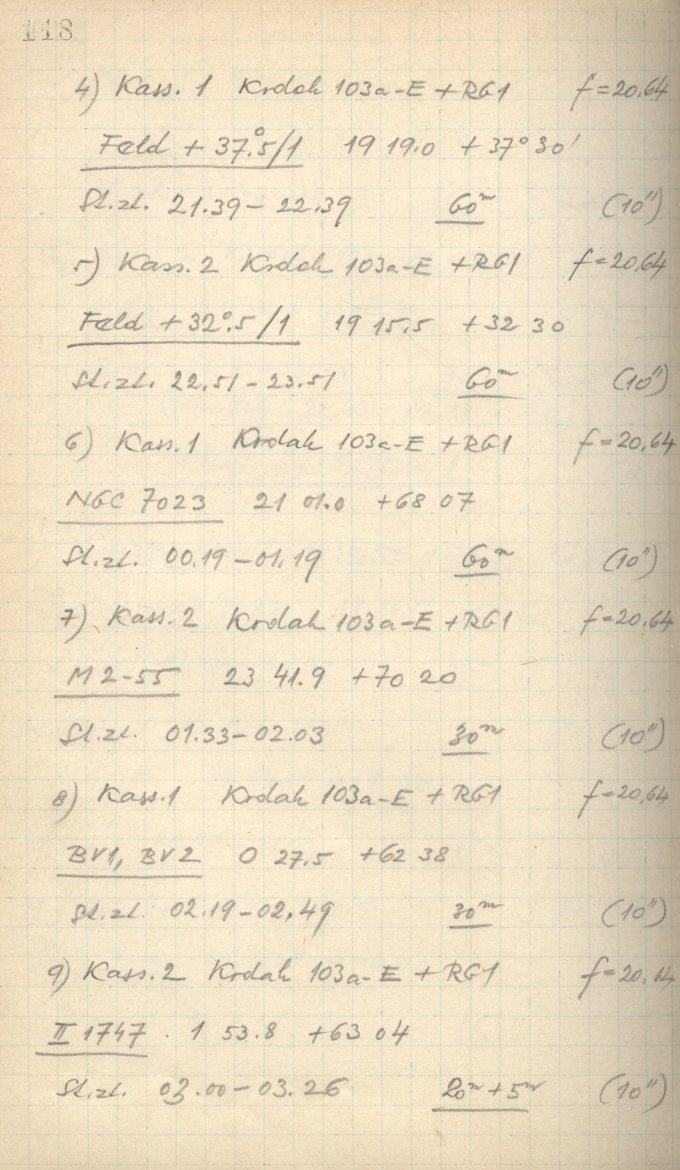 118
4) Kass. 1 Kodak 103a-E + RG1 f = 20.64
Feld + 37°.5/1 19 19.0 + 37° 30'
St.zt. 21.39 - 22.39 60ᵐ (10")
5) Kass. 2 Kodak 103a-E + RG1 f = 20.64
Feld + 32°.5/1 19 15.5 + 32 30
St.zt. 22.51 - 23.51 60ᵐ (10")
6) Kass. 1 Kodak 103a-E + RG1 f = 20.64
NGC 7023 21 01.0 + 68 07
St.zt. 00.19 - 01.19 60ᵐ (10")
7) Kass. 2 Kodak 103a-E + RG1 f = 20.64
M 2-55 23 41.9 + 70 20
St.zt. 01.33 - 02.03 30ᵐ (10")
8) Kass. 1 Kodak 103a-E + RG1 f = 20.64
BV1, BV2 0 27.5 + 62 38
St.zt. 02.19 - 02.49 30ᵐ (10")
9) Kass. 2 Kodak 103a-E + RG1 f = 20.64
II 1747 . 1 53.8 + 63 04
St.zt. 03.00 - 03.26 20ᵐ + 5ᵐ (10")